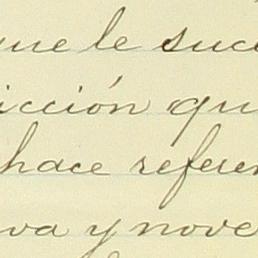 que le suce
icción qu
hace referen
va y nove